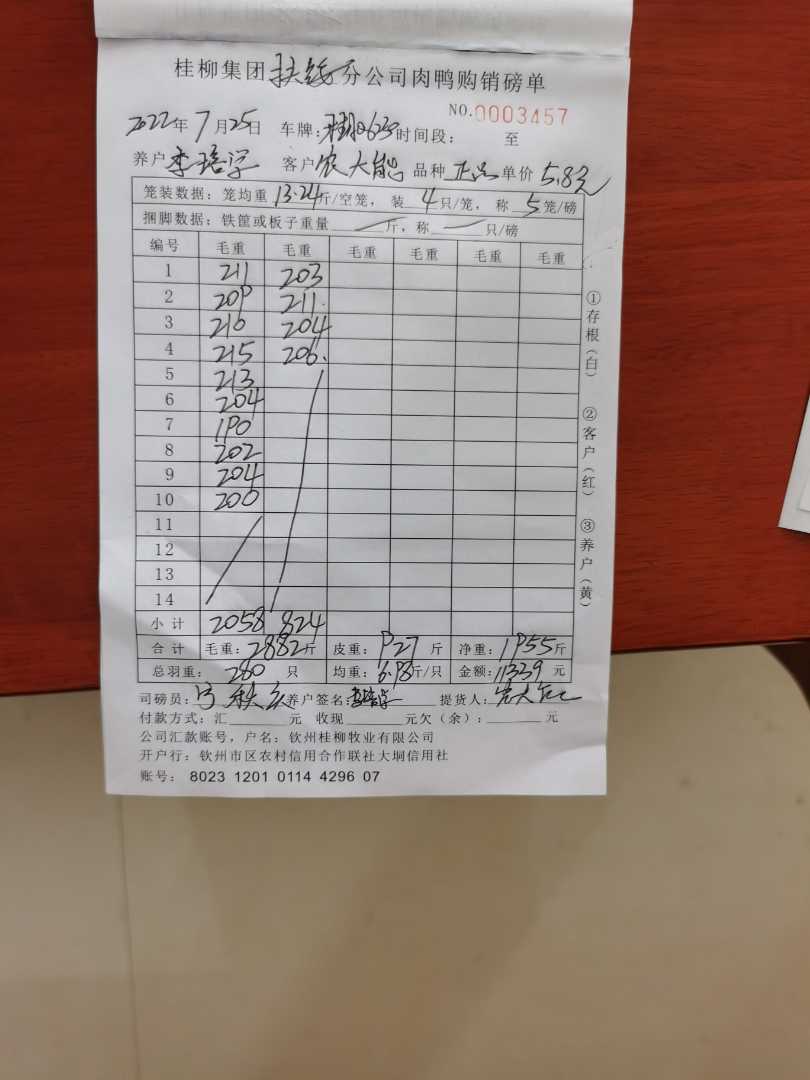 桂柳集团扶绥分公司肉鸭购销磅单
NO.0003457
2022年7月25日 车牌: 时间段: 至
养户 李培学 客户 农大能 品种 正品 单价 5.8元
笼装数据: 笼均重 13.24斤/空笼, 装 4 只/笼, 称 5 笼/磅
捆脚数据: 铁筐或板子重量 — 斤, 称 — 只/磅
编号 毛重 毛重 毛重 毛重 毛重 毛重
1 211 203
2 209 211.
3 210 204
4 215 206.
5 213
6 204
7 190
8 202
9 204
10 200
11
12
13
14
小计 2058 824
合计 毛重: 2882斤 皮重: 927 斤 净重: 1955斤
总羽重: 280 只 均重: 6.98斤/只 金额: 11339 元
司磅员: 养户签名: 李培学 提货人: 农大能
付款方式: 汇 元 收现 元欠(余): 元
公司汇款账号, 户名: 钦州桂柳牧业有限公司
开户行: 钦州市区农村信用合作联社大垌信用社
账号: 8023 1201 0114 4296 07
①存根(白)
②客户(红)
③养户(黄)